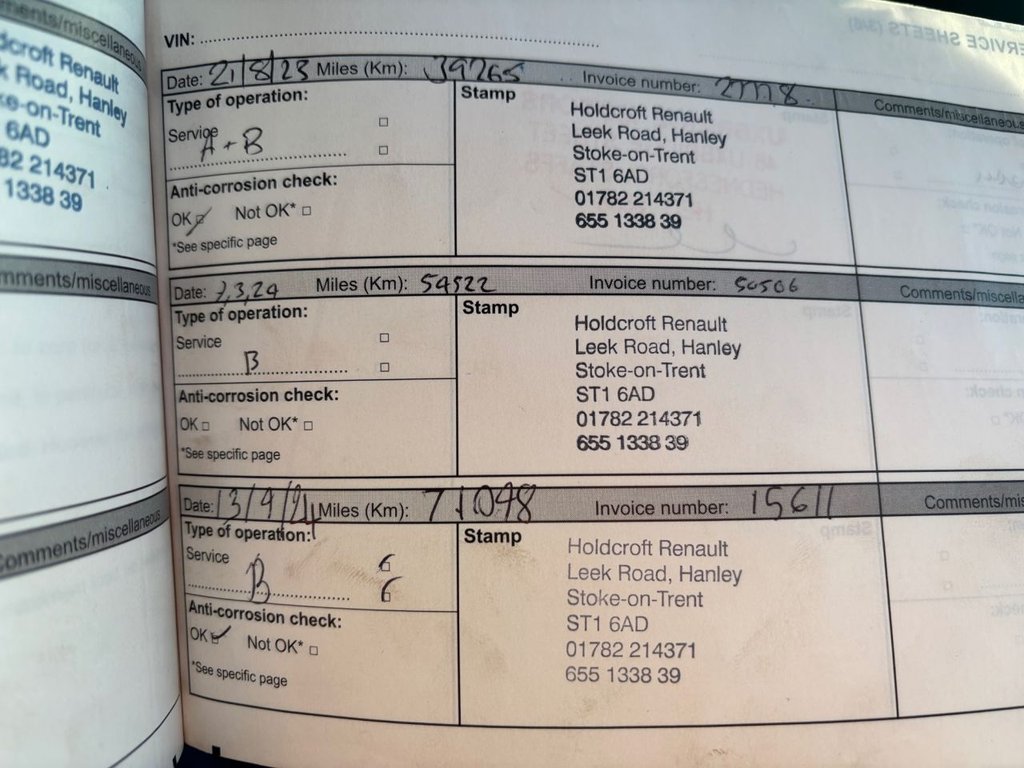 ments/miscellaneous
dcroft Renault
k Road, Hanley
ke-on-Trent
6AD
82 214371
1338 39
mments/miscellaneous
omments/miscellaneous
VIN:
Date: 21/8/23 Miles (Km): 39265 Invoice number: Comments/miscellaneous
Type of operation:
Service
A + B
Anti-corrosion check:
OK Not OK*
*See specific page
Stamp
Holdcroft Renault
Leek Road, Hanley
Stoke-on-Trent
ST1 6AD
01782 214371
655 1338 39
Date: Miles (Km): 54522 Invoice number: 50506 Comments/miscella
Type of operation:
Service
B
Anti-corrosion check:
OK Not OK*
*See specific page
Stamp
Holdcroft Renault
Leek Road, Hanley
Stoke-on-Trent
ST1 6AD
01782 214371
655 1338 39
Date: 13/9/24 Miles (Km): 71098 Invoice number: 15611 Comments/mis
Type of operation:
Service
B
Anti-corrosion check:
OK Not OK*
*See specific page
Stamp
Holdcroft Renault
Leek Road, Hanley
Stoke-on-Trent
ST1 6AD
01782 214371
655 1338 39